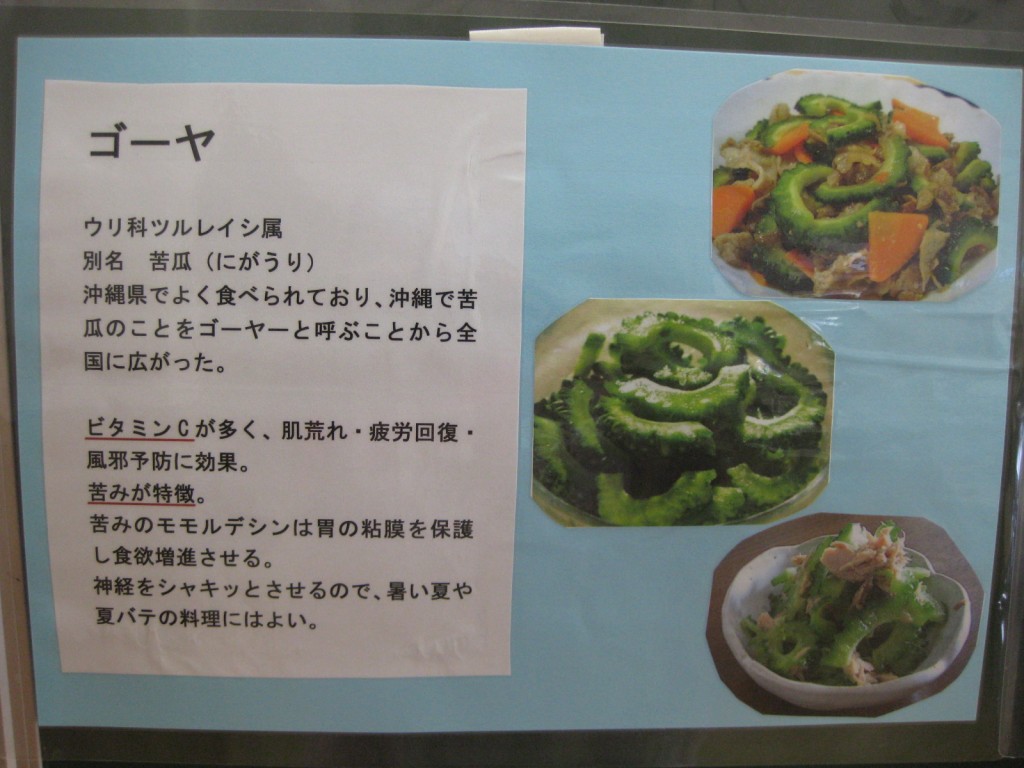 ゴーヤ
ウリ科ツルレイシ属
別名　苦瓜（にがうり）
沖縄県でよく食べられており、沖縄で苦
瓜のことをゴーヤーと呼ぶことから全
国に広がった。
ビタミンCが多く、肌荒れ・疲労回復・
風邪予防に効果。
苦みが特徴。
苦みのモモルデシンは胃の粘膜を保護
し食欲増進させる。
神経をシャキッとさせるので、暑い夏や
夏バテの料理にはよい。